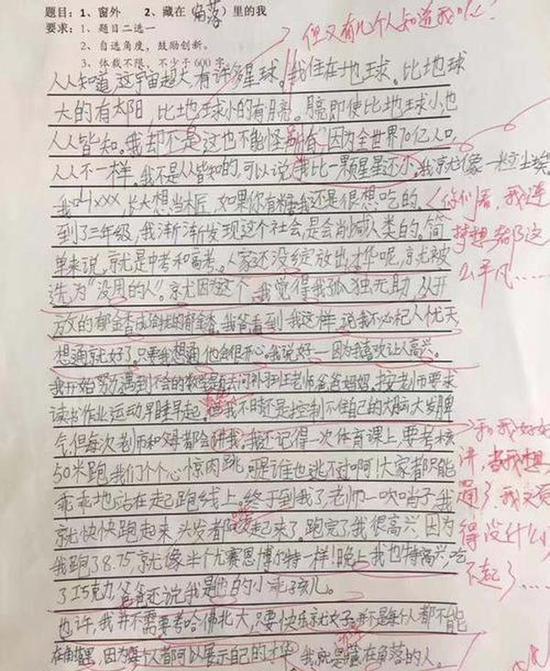 题目：1、窗外 2、藏在（角落）里的我
要求：1、题目二选一
2、自选角度，鼓励创新。
3、体裁不限，不少于600字
但又有几个人知道我呢？
人人知道，这宇宙超大，有许多星球。我住在地球。比地球
大的有太阳，比地球小的有月亮。月亮即使比地球小，也
人人皆知。我却不是，这也不能怪所有，因为全世界70亿人口，
人人不一样。我不是人人皆知的，可以说我比一颗星星还小。我就像一粒尘埃
我叫xxx，长大想当木匠，如果你有糖我还是很想吃的。
你们看，我连
梦想都这
么平凡……
到了三年级，我渐渐发现这个社会，是会削减人类的，简
单来说，就是中考和高考。人家还没绽放出才华呢，就被
选为“没用的人”。就因为这个，我觉得我孤独无助，从开
方的郁金香 的郁金香。我爸看到我这样，说我不必杞人忧天
想通就好了，只要我想通，他会很开心。我说好，因为我喜欢让人高兴。
我开始努力，遇到不会的数学题去问补习班老师、爸爸妈妈，按老师要求
读书作业运动早睡早起。但我不时还是控制不住自己的大脑大发脾
气，但每次老师和父母都会 我。我还记得一次体育课上，要考核
和我好好
讲，当我想
通了，我又觉
得没什么
了不起了……
50米跑，我们个个心惊肉跳，可是谁也逃不过啊！大家都只能
乖乖地站在起跑线上。终于到我了，老师一吹哨子，我
就快快跑起来，头发都 起来了。跑完了我很高兴，因为
我跑了8.75，就像半个尤赛恩博尔特一样！晚上我也特高兴，吃
了巧克力，爸爸还说我是他的小 孩儿。
也许，我并不需要考哈佛北大，只要快乐就好。并不是每个人都不能
在角落里，因为每个人都可以展示自己的才华。我就是藏在角落的人。